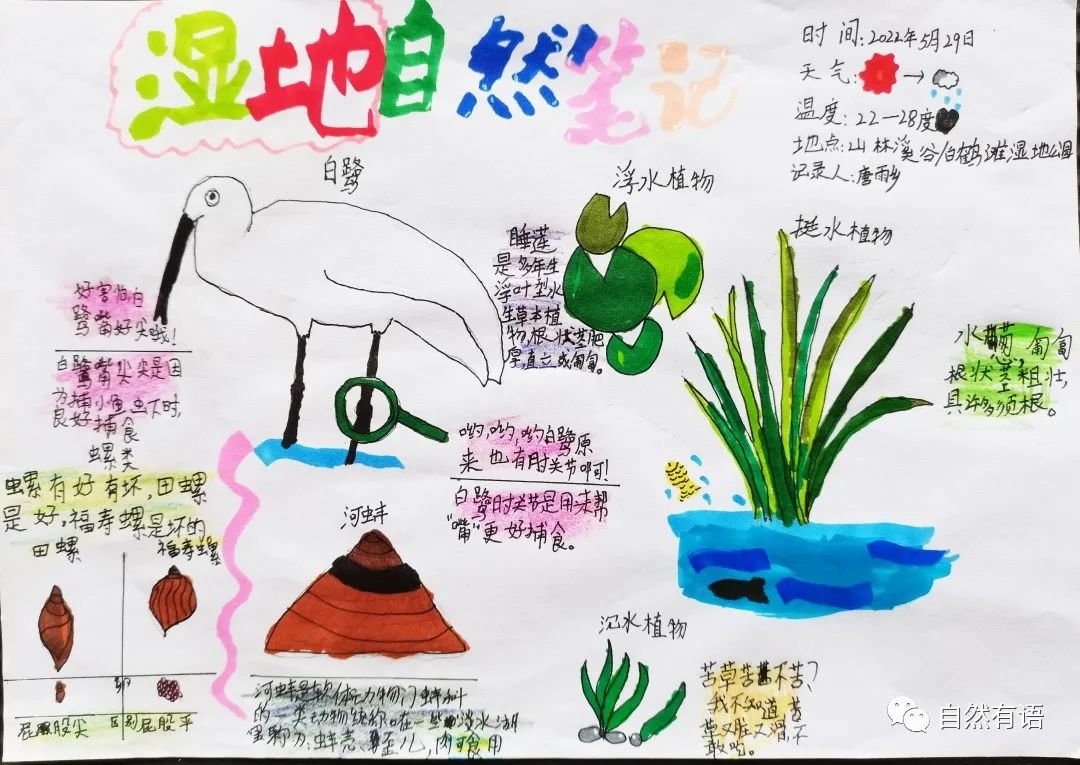 湿地自然笔记
时间:2022年5月29日
天气: →
温度:22—28度
地点:山林溪谷/白鹤滩湿地公园
记录人:唐雨乡
白鹭
好害怕,白
鹭嘴好尖哦!
白鹭嘴尖尖是因
为捕小鱼虫下时,
良好捕食
浮水植物
睡莲
是多年生
浮叶型水
生草本植
物,根状茎肥
厚,直立或匍匐。
挺水植物
水菊,匍匐
根状茎粗壮,
具许多须根。
哟,哟,哟白鹭原
来也有肘关节啊!
白鹭肘关节是用来帮
“嘴”更好捕食。
螺类
虫螺有好有坏,田螺
是好,福寿螺是坏的
田螺
福寿螺
卵
屁股尖
区别
屁股平
河蚌
河蚌是软体动物门蚌科
的一类动物统称
在一些淡水湖
肉可食用
沉水植物
苦草苦不苦?
我不知道苦
草又在人唱,不
敢吃。
自然有语